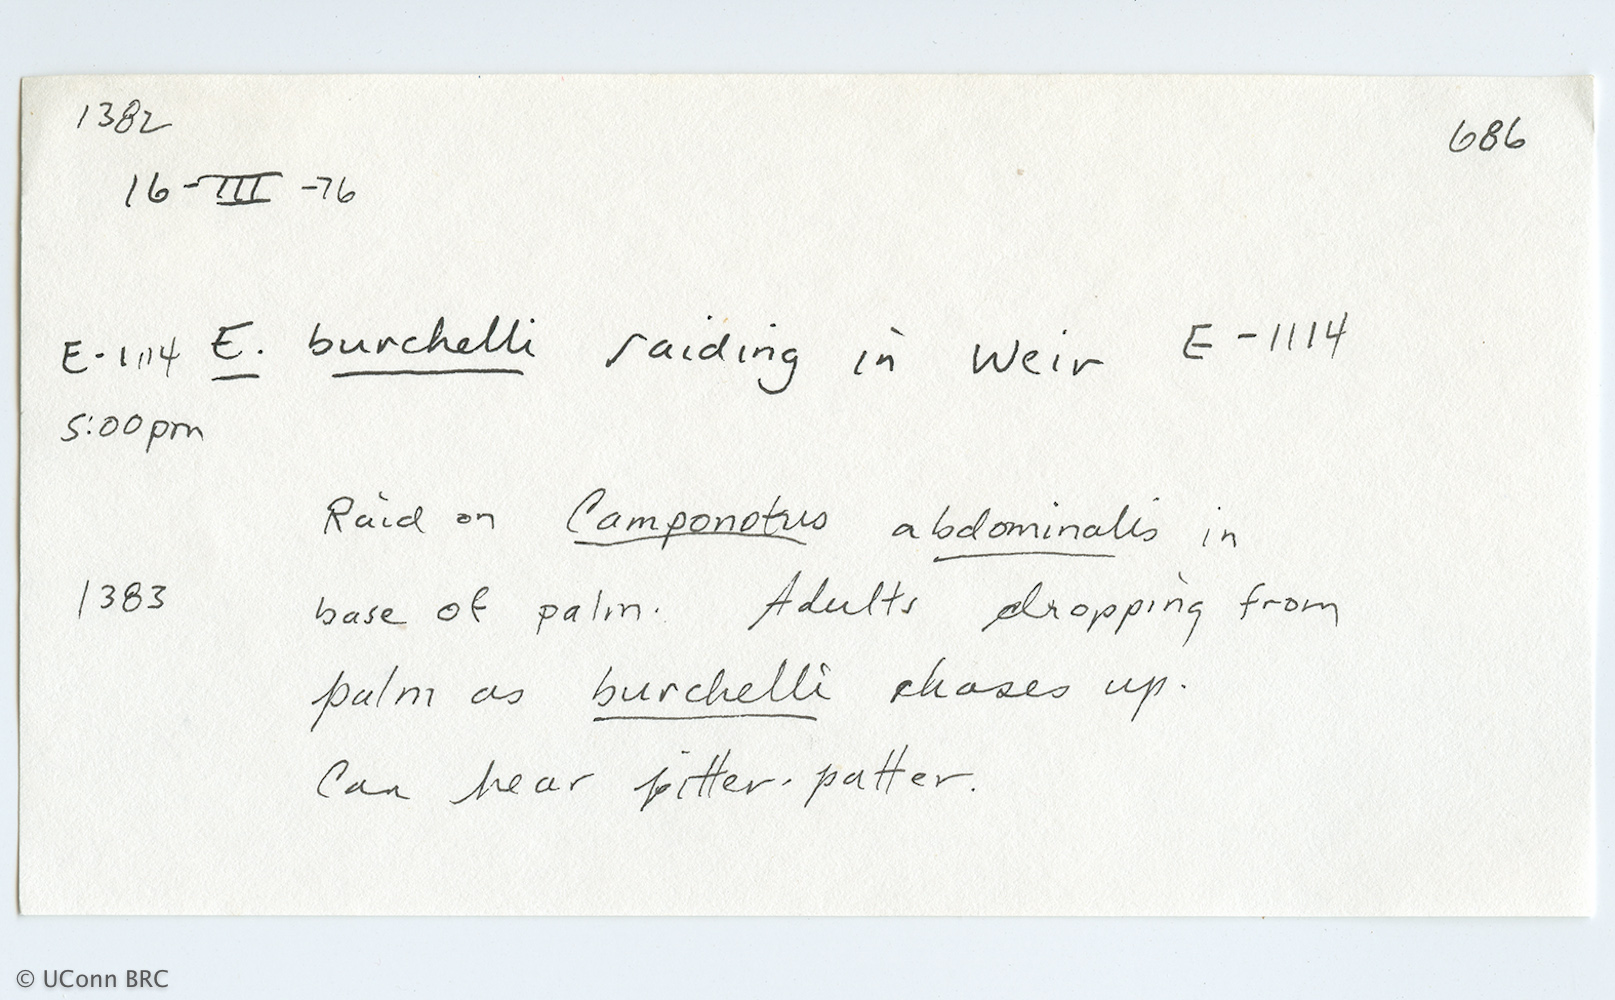 1382
686
16-III-76
E-1114 E. burchelli raiding in Weir E-1114
5:00pm
Raid on Camponotus abdominalis in
1383 base of palm. Adults dropping from
palm as burchelli chases up.
Can hear pitter-patter.
© UConn BRC